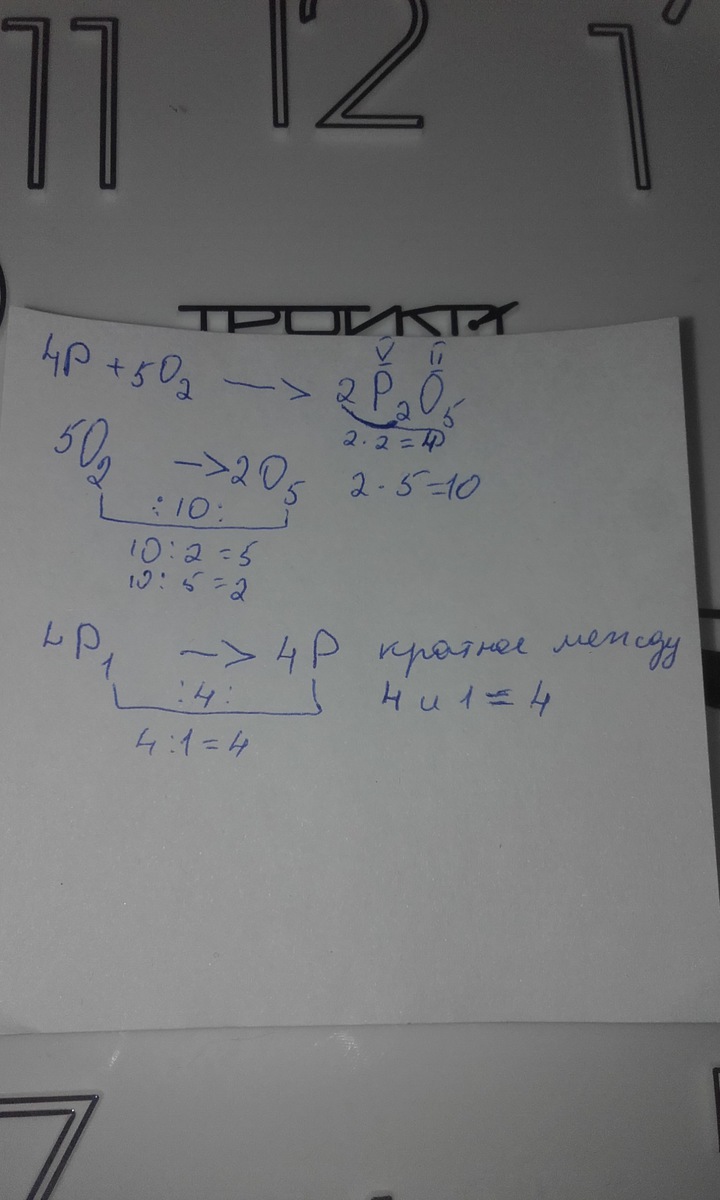 11 12 1
ТРОЙКА
4P + 5O₂ —> 2P₂O₅
V II
2·2=4P
5O₂ —> 2O₅ 2·5=10
:10:
10:2=5
10:5=2
4P₁ —> 4P кратное между
:4: 4 и 1 = 4
4:1=4
7